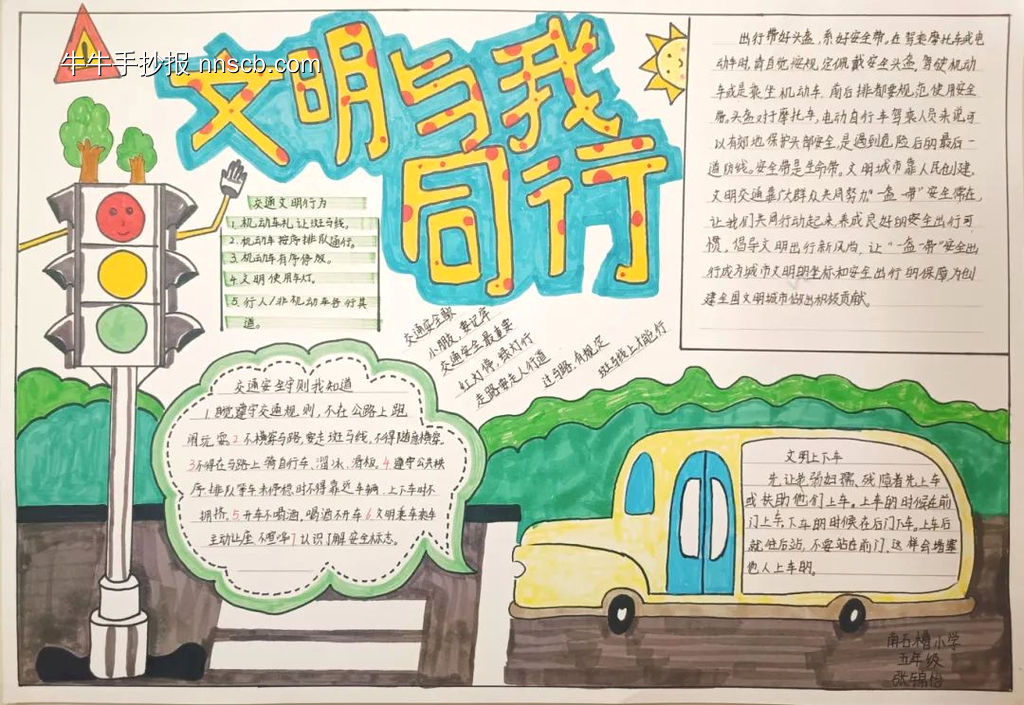 牛牛手抄报 nnscb.com
文明与我
同行
交通文明行为
1.机动车礼让斑马线。
2.机动车按序排队通行。
3.机动车有序停放。
4.文明使用车灯。
5.行人/非机动车各行其
道。
出行带好头盔,系好安全带。在驾乘摩托车或电
动车时,请自觉按规定佩戴安全头盔,驾驶机动
车或是乘坐机动车,前后排都要规范使用安全
带。头盔对于摩托车,电动自行车驾乘人员来说,可
以有效地保护头部安全,是遇到危险后的最后一
道防线。安全带是生命带。文明城市靠人民创建,
文明交通靠广大群众共同努力"一盔一带"安全常在,
让我们共同行动起来,养成良好的安全出行习
惯,倡导文明出行新风尚,让"一盔一带"安全出
行成为城市文明的坐标和安全出行的保障为创
建全国文明城市做出积极贡献。
交通安全歌
小朋友,要记牢
交通安全最重要
红灯停,绿灯行
走路要走人行道
过马路,有规定
斑马线上才能行
交通安全守则我知道
1.自觉遵守交通规则,不在公路上跑
闹玩耍2.不横穿马路,要走斑马线,不得随意横穿
3不得在马路上骑自行车、溜冰、滑板。4.遵守公共秩
序,排队等车未停稳时不得靠近车辆,上下车时不
拥挤。5.开车不喝酒,喝酒不开车6.文明乘车乘车
主动让座不喧哗7认识了解安全标志。
文明上下车
先让老弱妇孺,残障者先上车
或扶助他们上车。上车的时候在前
门上车,下车的时候在后门下车。上车后
就往后站,不要站在前门,这样会堵塞
他人上车的。
南石槽小学
五年级